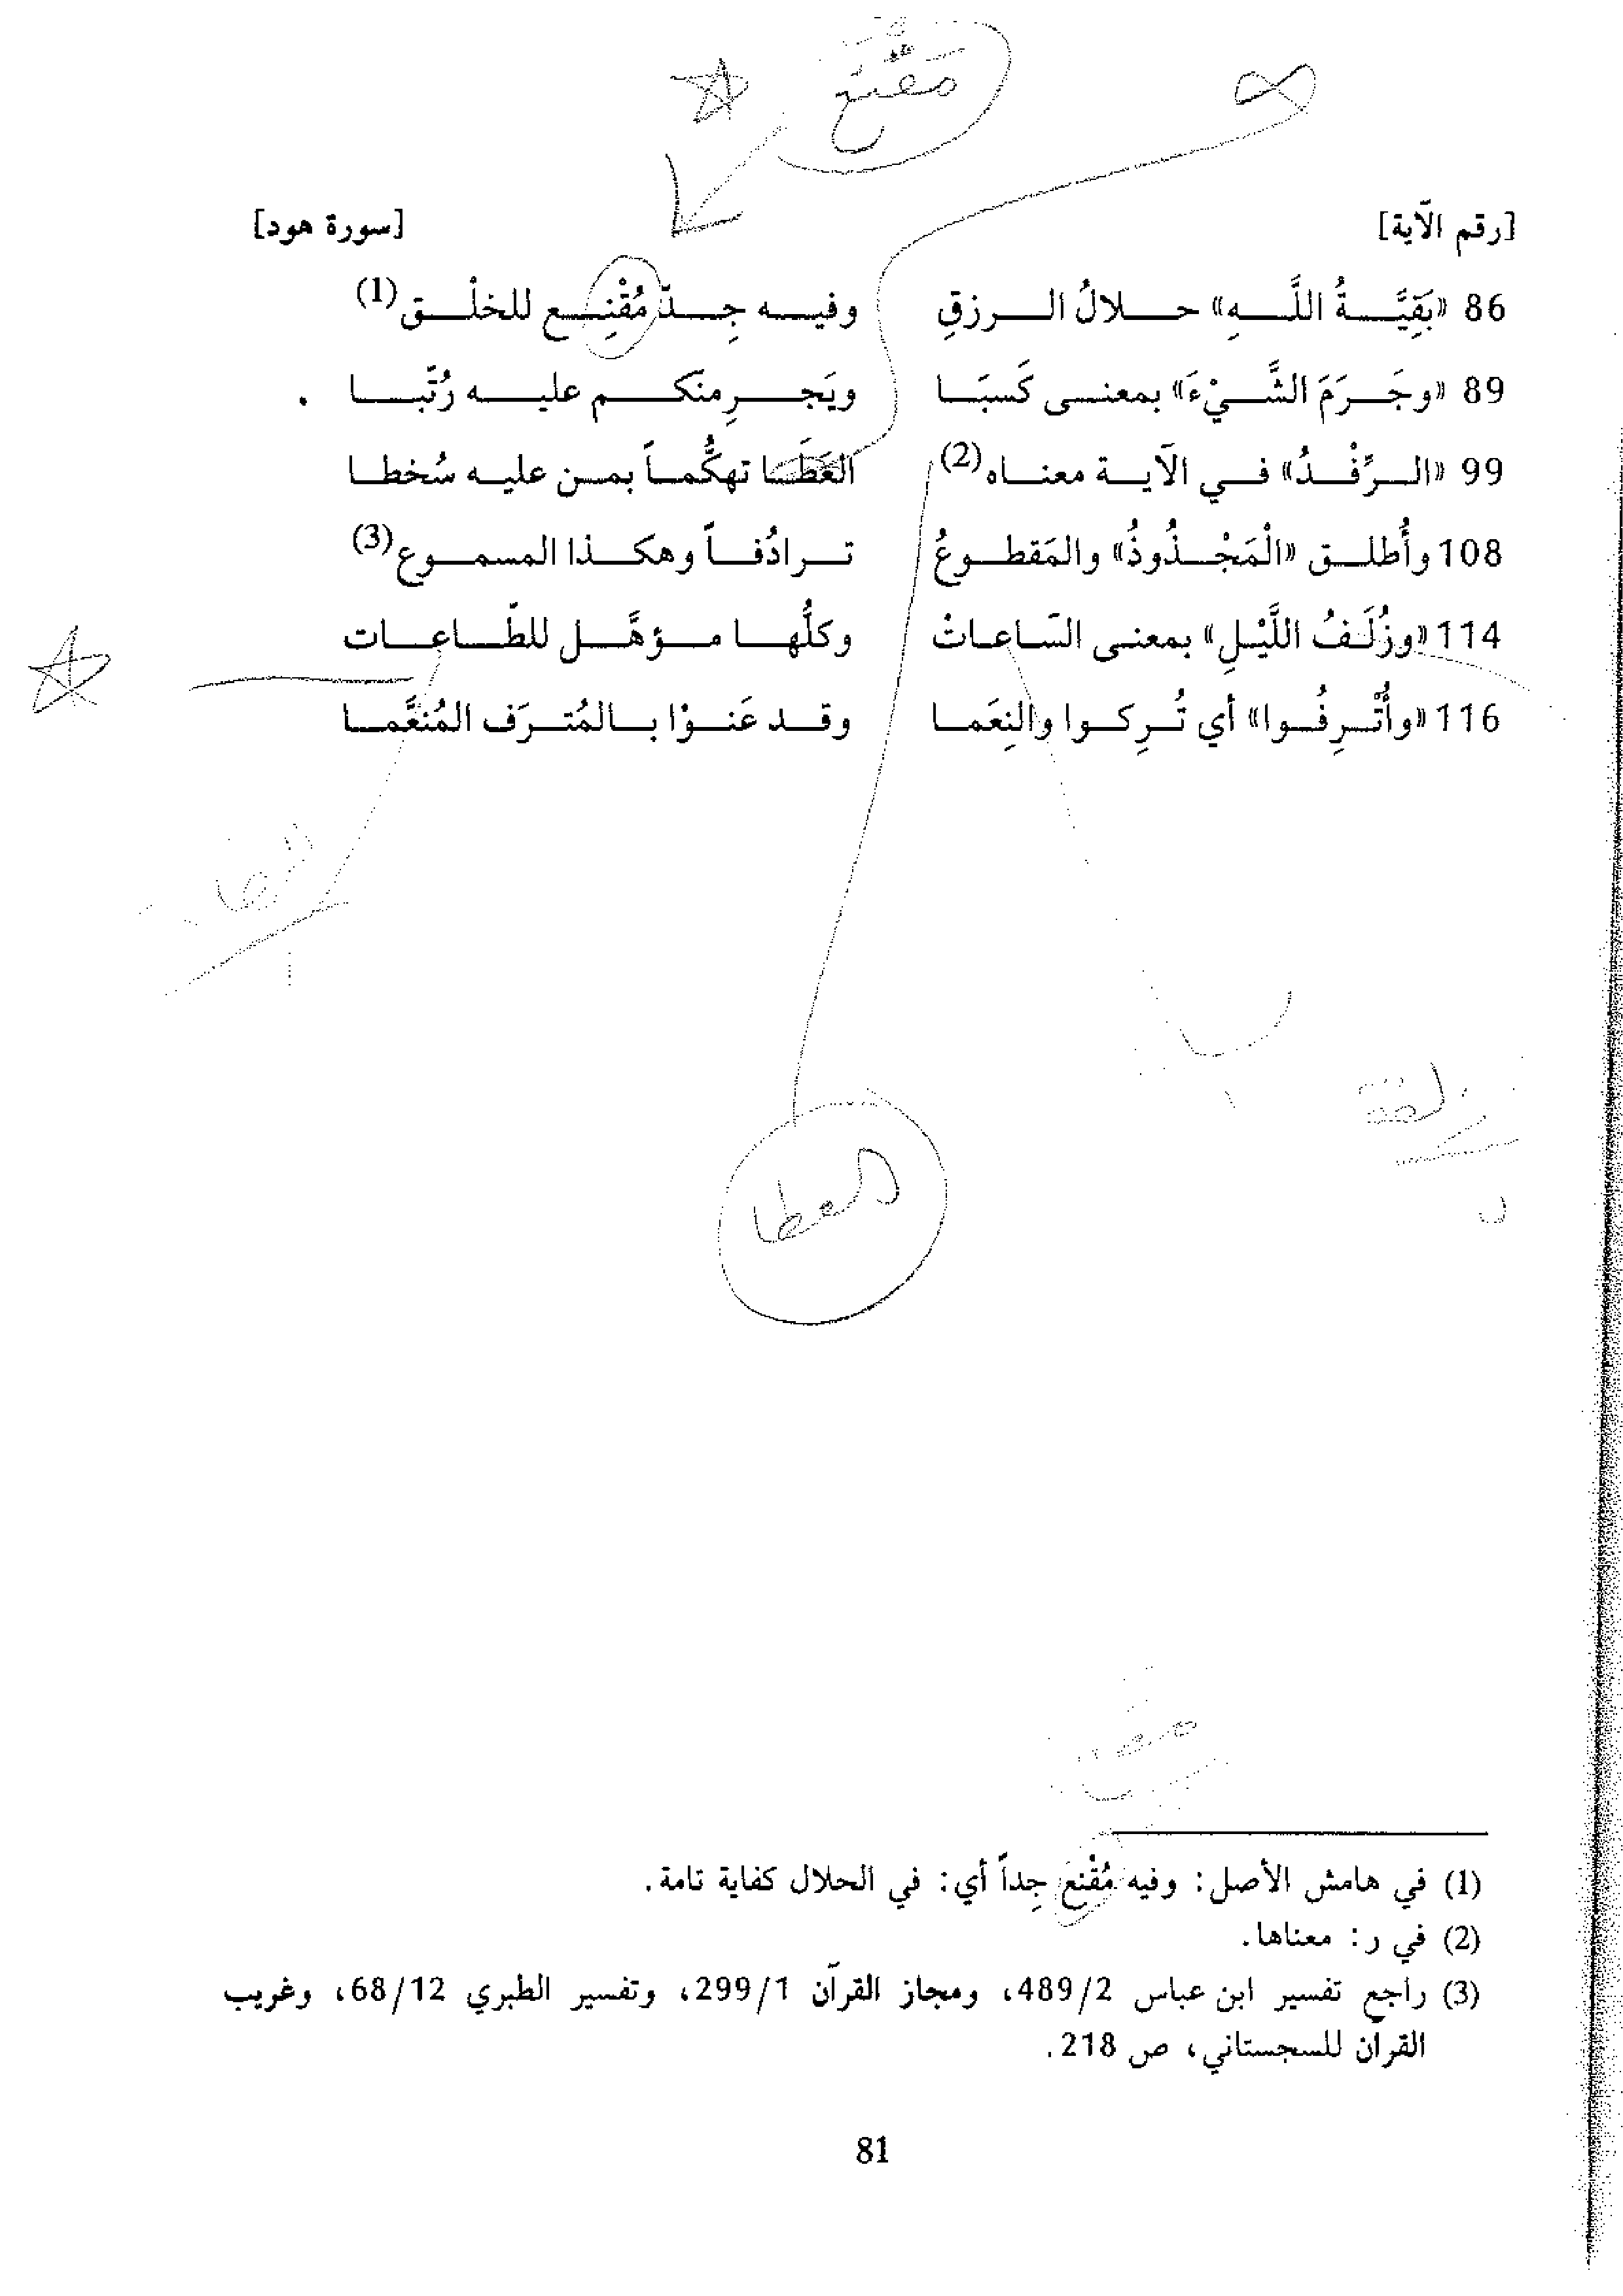 مَقْنَع
[رقم الآية] [سورة هود]
86 «بَقِيَّةُ اللَّهِ» حلالُ الرزقِ وفيه جِدّ مُقْنِع للخلْق(1)
89 «وجَرَمَ الشَّيْءَ» بمعنى كَسبَا ويَجرِمنكم عليه رُتّبا .
99 «الرِّفْدُ» في الآية معناه(2) العَطَا تهكُّماً بمن عليه سُخطا
108 وأُطلق «الْمَجْذُوذُ» والمَقطوعُ ترادُفاً وهكذا المسموع(3)
114 «وزُلَفُ اللَّيْلِ» بمعنى السّاعاتْ وكلُّها مؤهَّل للطّاعات
116 «وأُتْرِفُوا» أي تُرِكوا والنِعَما وقد عَنوْا بالمُترَف المُنعَّما
زلفة
العطا
(1) في هامش الأصل: وفيه مُقْنع جِداً أي: في الحلال كفاية تامة.
(2) في ر: معناها.
(3) راجع تفسير ابن عباس 489/2، ومجاز القرآن 299/1، وتفسير الطبري 68/12، وغريب
القرآن للسجستاني، ص 218.
81